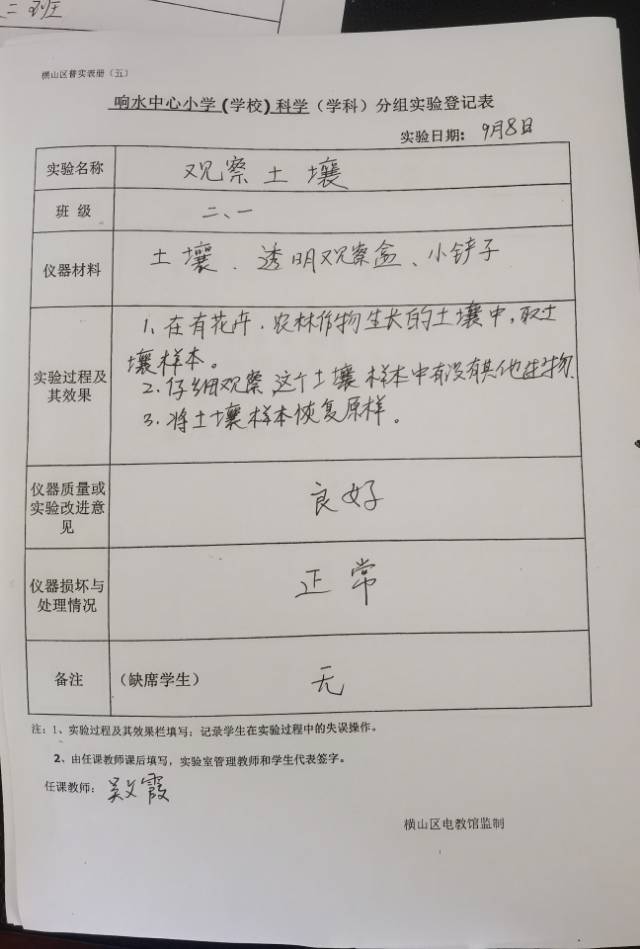 二班
横山区普实表册（五）
响水中心小学(学校)科学（学科）分组实验登记表
实验日期：9月8日
实验名称 观察土壤
班 级 二、一
仪器材料 土壤、透明观察盒、小铲子
实验过程及其效果 1、在有花卉、农林作物生长的土壤中，取土
壤样本。
2、仔细观察这个土壤样本中有没有其他生物
3、将土壤样本恢复原样。
仪器质量或实验改进意见 良好
仪器损坏与处理情况 正常
备注 （缺席学生） 无
注：1、实验过程及其效果栏填写：记录学生在实验过程中的失误操作。
2、由任课教师课后填写，实验室管理教师和学生代表签字。
任课教师：吴文霞
横山区电教馆监制